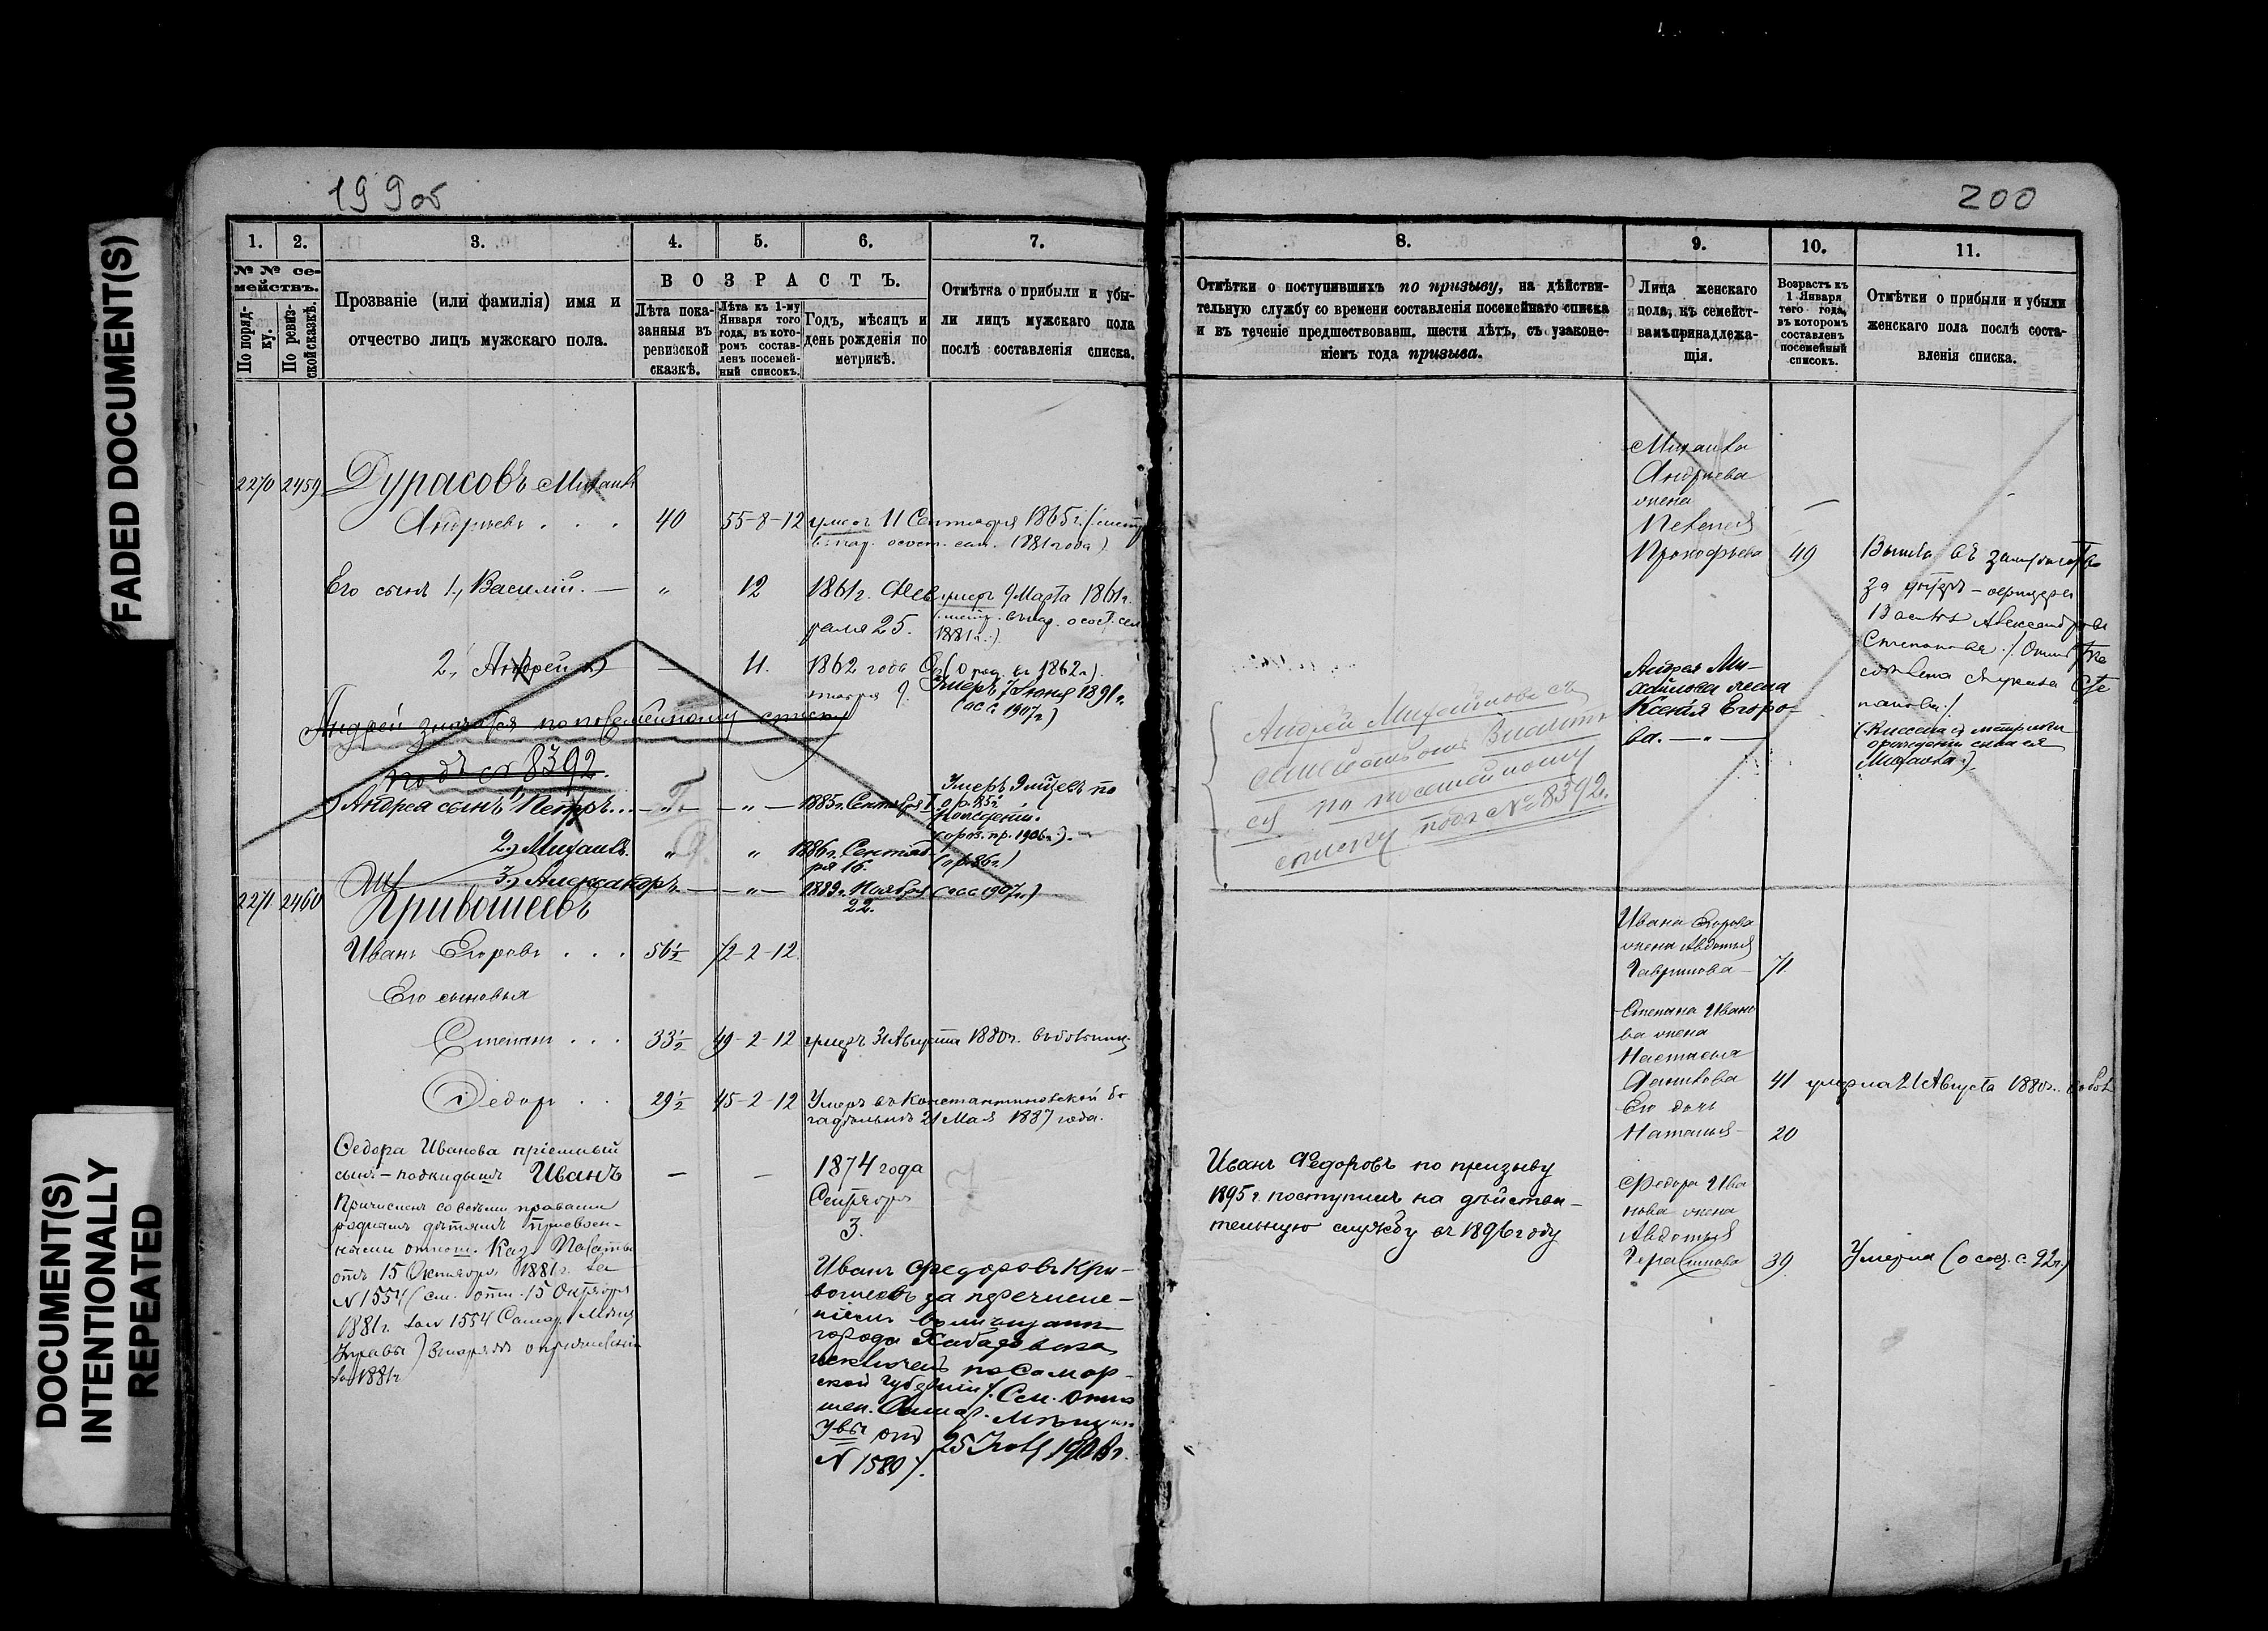 FADED DOCUMENT(S)
DOCUMENT(S)
INTENTIONALLY
REPEATED
199об
1. 2. 3. 4. 5. 6. 7.
№ № се-
мействъ.
По поряд-
ку.
По ревиз-
ской сказкѣ.
Прозваніе (или фамилія) имя и
отчество лицъ мужскаго пола.
ВОЗРАСТЪ.
Лѣта пока-
занныя въ
ревизской
сказкѣ.
Лѣта къ 1-му
Января того
года, въ кото-
ромъ состав-
ленъ посемей-
ный списокъ.
Годъ, мѣсяцъ и
день рожденія по
метрикѣ.
Отмѣтка о прибыли и убы-
ли лицъ мужскаго пола
послѣ составленія списка.
2270 2459 Дурасовъ Михаилъ
Андреевъ . . . 40 55-8-12 умеръ 11 Сентября 1865 г.
1881 года)
Его сынъ 1, Василій. — „ 12 1861 г. Фев умеръ 9 Марта 1861 г.
раля 25.
1881 г.)
2, Андрей — 11. 1862 года Ок (о род. въ 1862 г.)
тября 9. Умеръ 7 Іюня 1891 г.
1907 г.)
Андрей значится по посемейному списку
подъ № 8392.
Андрея сынъ 1, Петръ... — „ — 1885 г. Сентября Умеръ
(о р. 85 г.
1906 г.). —
2, Михаилъ. „ „ 1886 г. Сентяб-
ря 16. (о р. 86 г.)
3, Александръ. — „ — 1889 г. Ноября 1907 г.)
22.
2271 2460 Кривошеевъ
Иванъ Егоровъ . . . 56½ 72-2-12.
Его сыновья
Степанъ . . . 33½ 49-2-12 умеръ 31 Августа 1880 г.
Ѳедоръ . . 29½ 45-2-12 Умеръ въ Константиновской бо
гадѣльнѣ 21 Мая 1887 года.
Ѳедора Иванова пріемный
сынъ — подкидышъ Иванъ — — 1874 года
Сентября
3.
Причисленъ со всѣми правами
роднымъ дѣтямъ присвоен-
ными отнош. Каз. Палаты
отъ 15 Октября 1881 г. за
№ 1554 (см. отн. 15 Октября
1881 г. за № 1554 Самар. Мѣщ.
Управы)
за 1881 г.
Иванъ Ѳедоровъ Кри-
вошеевъ за перечисле-
ніемъ въ мѣщане
города Хабаровска
исключенъ по Самар-
ской губерніи /. См. отно
шен. Самар. Мѣщан
Увы отъ 25 1908 г.
№ 1580 /.
200
8. 9. 10. 11.
Отмѣтки о поступившихъ по призыву, на дѣйстви-
тельную службу со времени составленія посемейнаго списка
и въ теченіе предшествовавш. шести лѣтъ, съ узаконе-
ніемъ года призыва.
Лица женскаго
пола, къ семейст-
вамъ принадлежа-
щія.
Возрастъ къ
1 Января
того года,
въ которомъ
составленъ
посемейный
списокъ.
Отмѣтки о прибыли и убыли
женскаго пола послѣ соста-
вленія списка.
Михаила
Андреева
жена
Пелагея
Прокофьева 49
Вышла въ замужество
за унтеръ-офицера
Александрова
Степанова
Андрея Ми-
хайлова жена
Ксенія Егоро-
ва. — „ —
Андрей Михайловъ съ
семействомъ значит
ся по посемейному
списку подъ № 8392.
Ивана Егорова
жена Авдотья
Гаврилова — 71
Степана Ивано
ва жена
Настасья
Данилова 41 умерла 21 Августа 1880 г.
Его дочь
Наталья — 20
Иванъ Ѳедоровъ по призыву
1895 г. поступилъ на дѣйстви-
тельную службу въ 1896 году
Ѳедора Ива
нова жена
Авдотья
Герасимова 39 Умерла